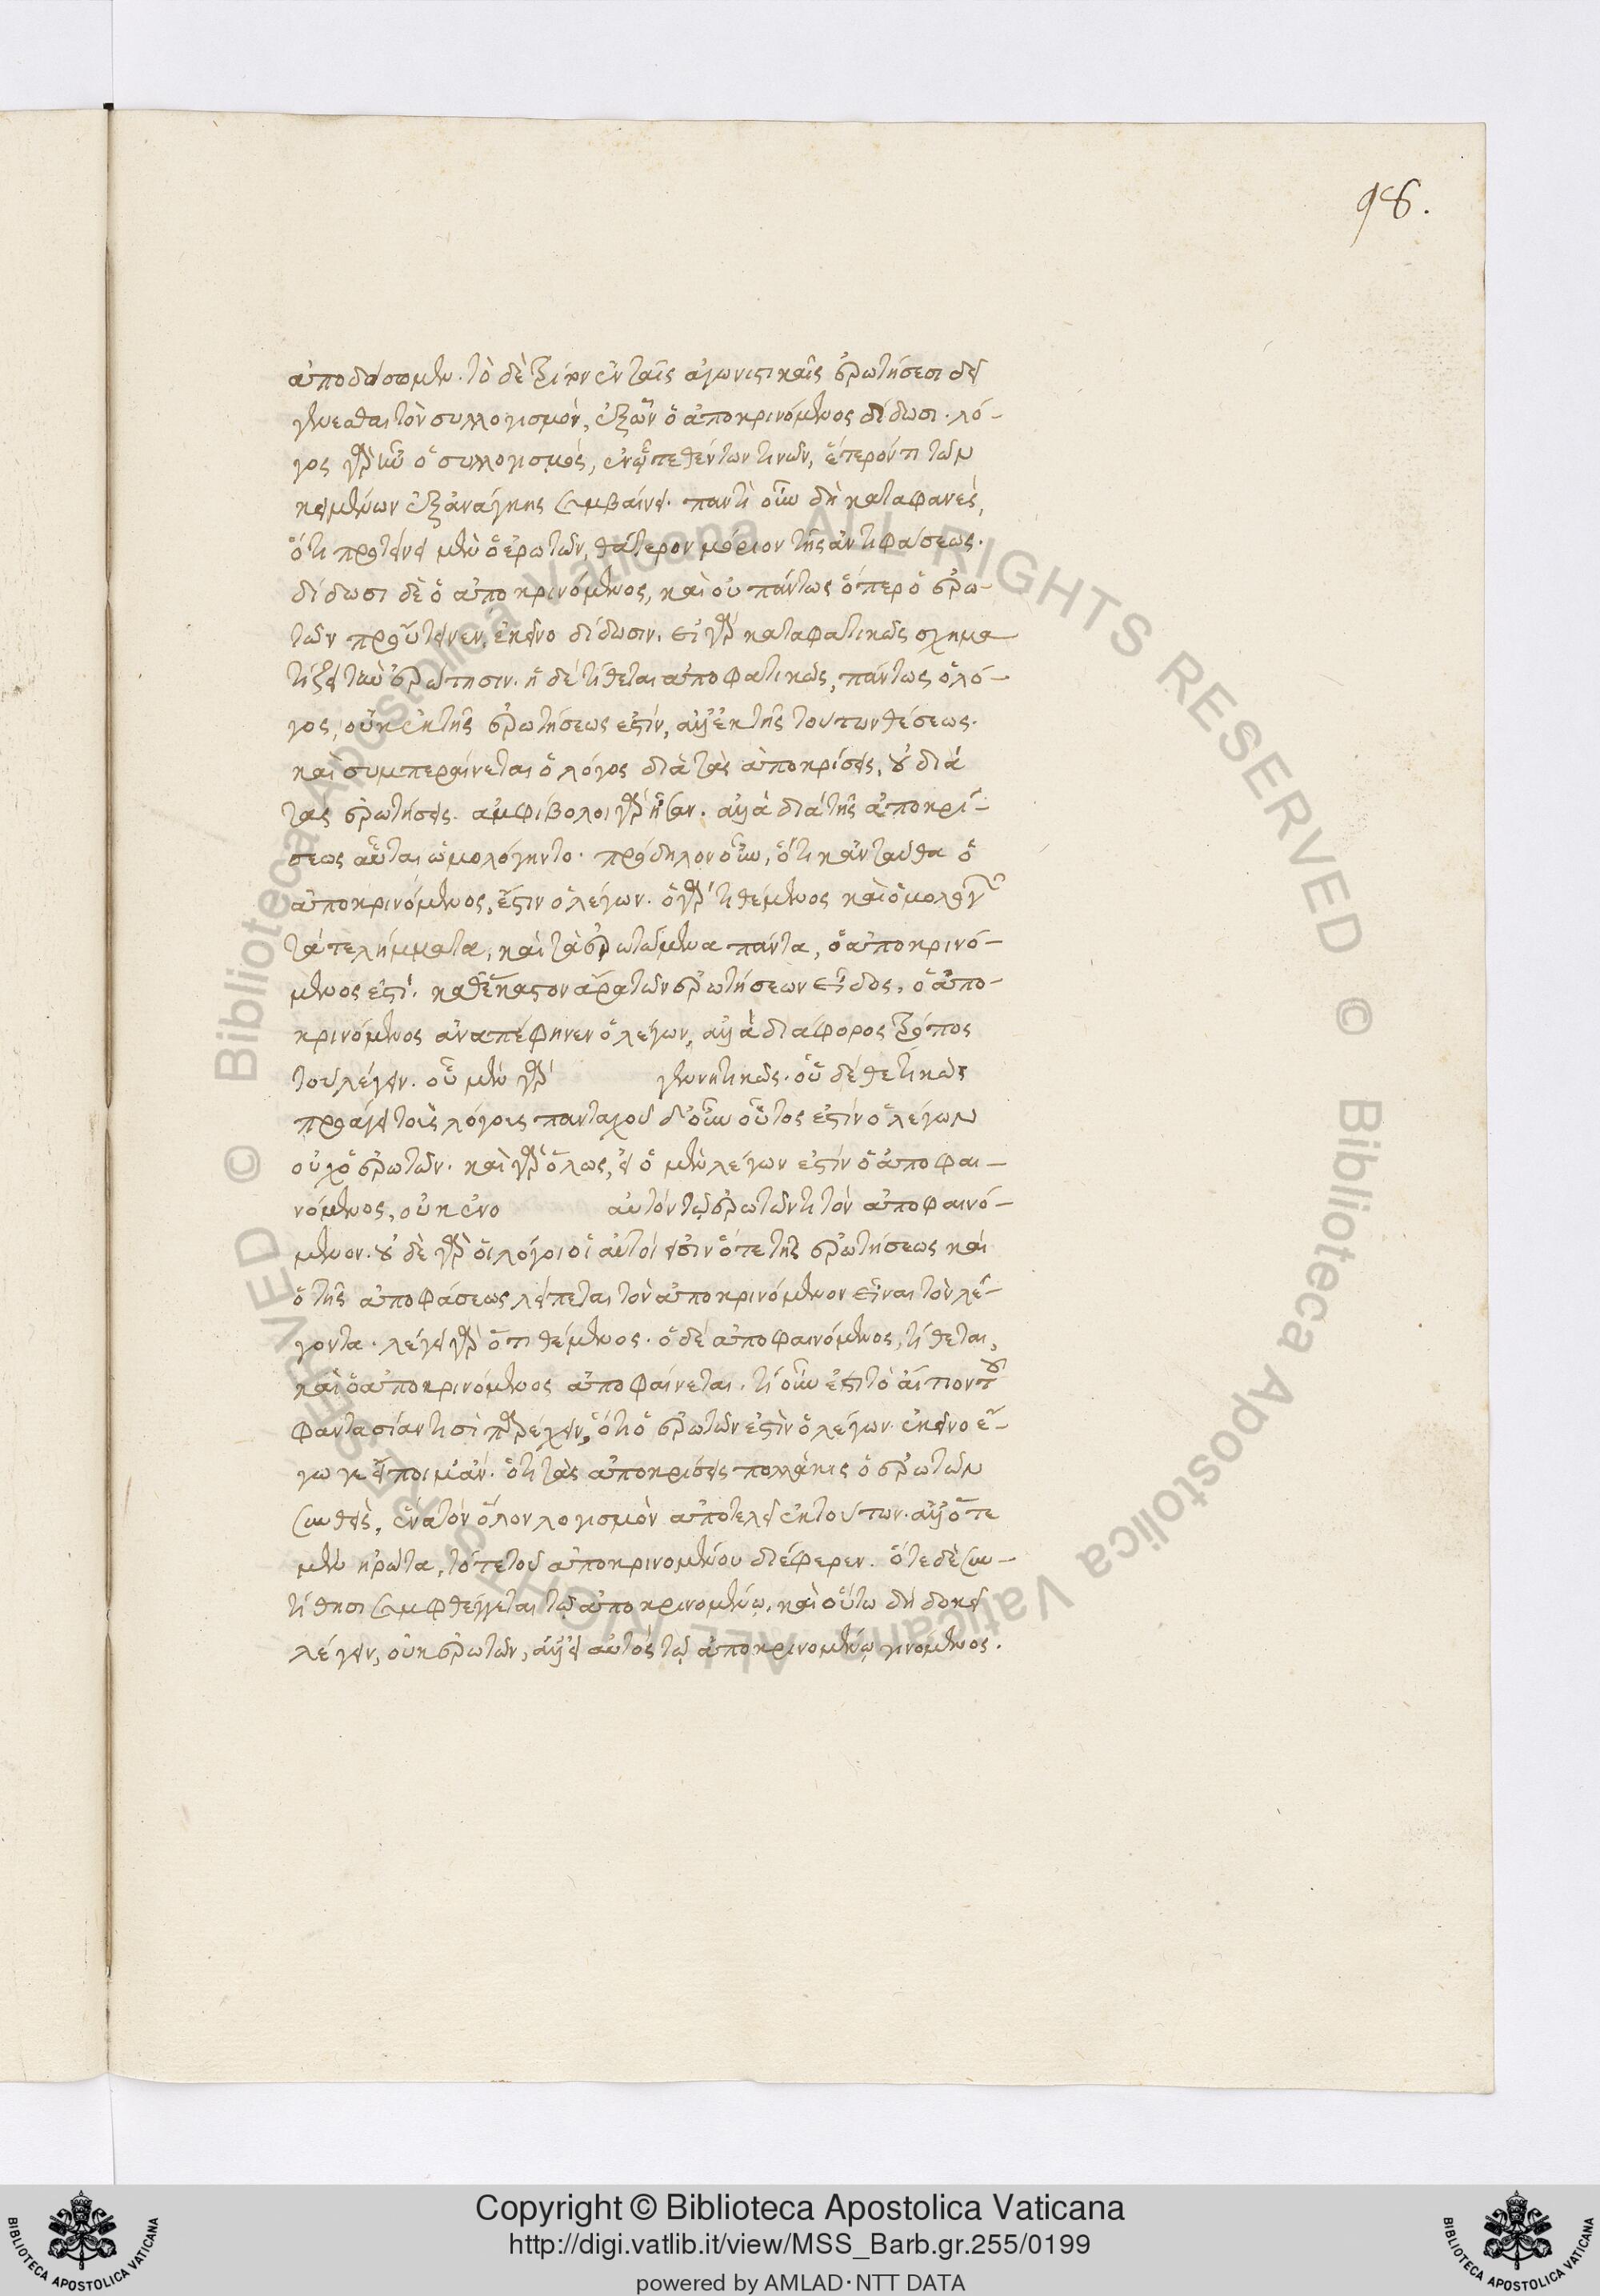 98.
ἀποδώσομεν. τὸ δὲ τρίτον ἐν ταῖς ἀγωνιστικαῖς ἐρωτήσεσι δεῖ
γενέσθαι τὸν συλλογισμὸν, ἐξ ὧν ὁ ἀποκρινόμενος δίδωσι. λό-
γος γὰρ ἦν ὁ συλλογισμός, ἐν ᾧ τεθέντων τινῶν, ἕτερόν τι τῶν
κειμένων ἐξ ἀνάγκης συμβαίνει. παντὶ οὖν δὴ καταφανὲς,
ὅτι προτείνει μὲν ὁ ἐρωτῶν, θάτερον μόριον τῆς ἀντιφάσεως.
δίδωσι δὲ ὁ ἀποκρινόμενος, καὶ οὐ πάντως ὅπερ ὁ ἐρω-
τῶν προὔτεινεν, ἐκεῖνο δίδωσιν. εἰ γὰρ καταφατικῶς σχημα
τίζει τὴν ἐρώτησιν. ἡ δὲ τίθεται ἀποφατικῶς, πάντως ὁ λό-
γος, οὐκ ἐκ τῆς ἐρωτήσεως ἐστίν, ἀλλ' ἐκ τῆς τούτων θέσεως.
καὶ συμπεραίνεται ὁ λόγος διὰ τὰς ἀποκρίσεις, οὐ διὰ
τὰς ἐρωτήσεις. ἀμφίβολοι γὰρ ἦσαν. ἀλλὰ διὰ τῆς ἀποκρί-
σεως αὗται ὡμολόγηντο. πρόδηλον οὖν, ὅτι κἀνταῦθα ὁ
ἀποκρινόμενος, ἔστιν ὁ λέγων. ὁ γὰρ τιθέμενος καὶ ὁμολογῶν
τά τε λήμματα, καὶ τὰ ἐρωτώμενα πάντα, ὁ ἀποκρινό-
μενος ἐστί. καθ' ἕκαστον ἄρα τῶν ἐρωτήσεων εἶδος, ὁ ἀπο-
κρινόμενος ἀναπέφηνεν ὁ λέγων, ἀλλὰ διάφορος τρόπος
τοῦ λέγειν. οὗ μὲν γὰρ γεννητικῶς. οὗ δὲ θετικῶς
προάγει τοὺς λόγους πανταχοῦ δ' οὖν οὗτος ἐστὶν ὁ λέγων
οὐχ ὁ ἐρωτῶν. καὶ γὰρ ὅλως, εἰ ὁ μὲν λέγων ἐστὶν ὁ ἀποφαι-
νόμενος, οὐκ ἐνο αὐτὸν τῷ ἐρωτῶντι τὸν ἀποφαινό-
μενον. οὐδὲ γὰρ οἱ λόγοι οἱ αὐτοί εἰσιν ὅ τε τῆς ἐρωτήσεως καὶ
ὁ τῆς ἀποφάσεως λείπεται τὸν ἀποκρινόμενον εἶναι τὸν λέ-
γοντα. λέγει γὰρ ὁ τιθέμενος. ὁ δὲ ἀποφαινόμενος, τίθεται,
καὶ ὁ ἀποκρινόμενος ἀποφαίνεται. τί οὖν ἐστι τὸ αἴτιον τοῦ
φαντασίαν τισὶ παρέχειν, ὅτι ὁ ἐρωτῶν ἐστὶν ὁ λέγων. ἐκεῖνο ἔ-
γωγε εἴποιμ' ἄν. ὅτι τὰς ἀποκρίσεις πολλάκις ὁ ἐρωτῶν
συνθεὶς, ἕνα τὸν ὅλον λογισμὸν ἀποτελεῖ ἐκ τούτων. ἀλλ' ὅτε
μὲν ἠρώτα, τότε τοῦ ἀποκρινομένου διέφερεν. ὅτε δὲ συν-
τίθησι συμφθέγγεται τῷ ἀποκρινομένῳ, καὶ οὕτω δὴ δοκεῖ
λέγειν, οὐκ ἐρωτῶν, ἀλλ' εἷς αὐτὸς τῷ ἀποκρινομένῳ γινόμενος.
Copyright © Biblioteca Apostolica Vaticana
http://digi.vatlib.it/view/MSS_Barb.gr.255/0199
powered by AMLAD·NTT DATA